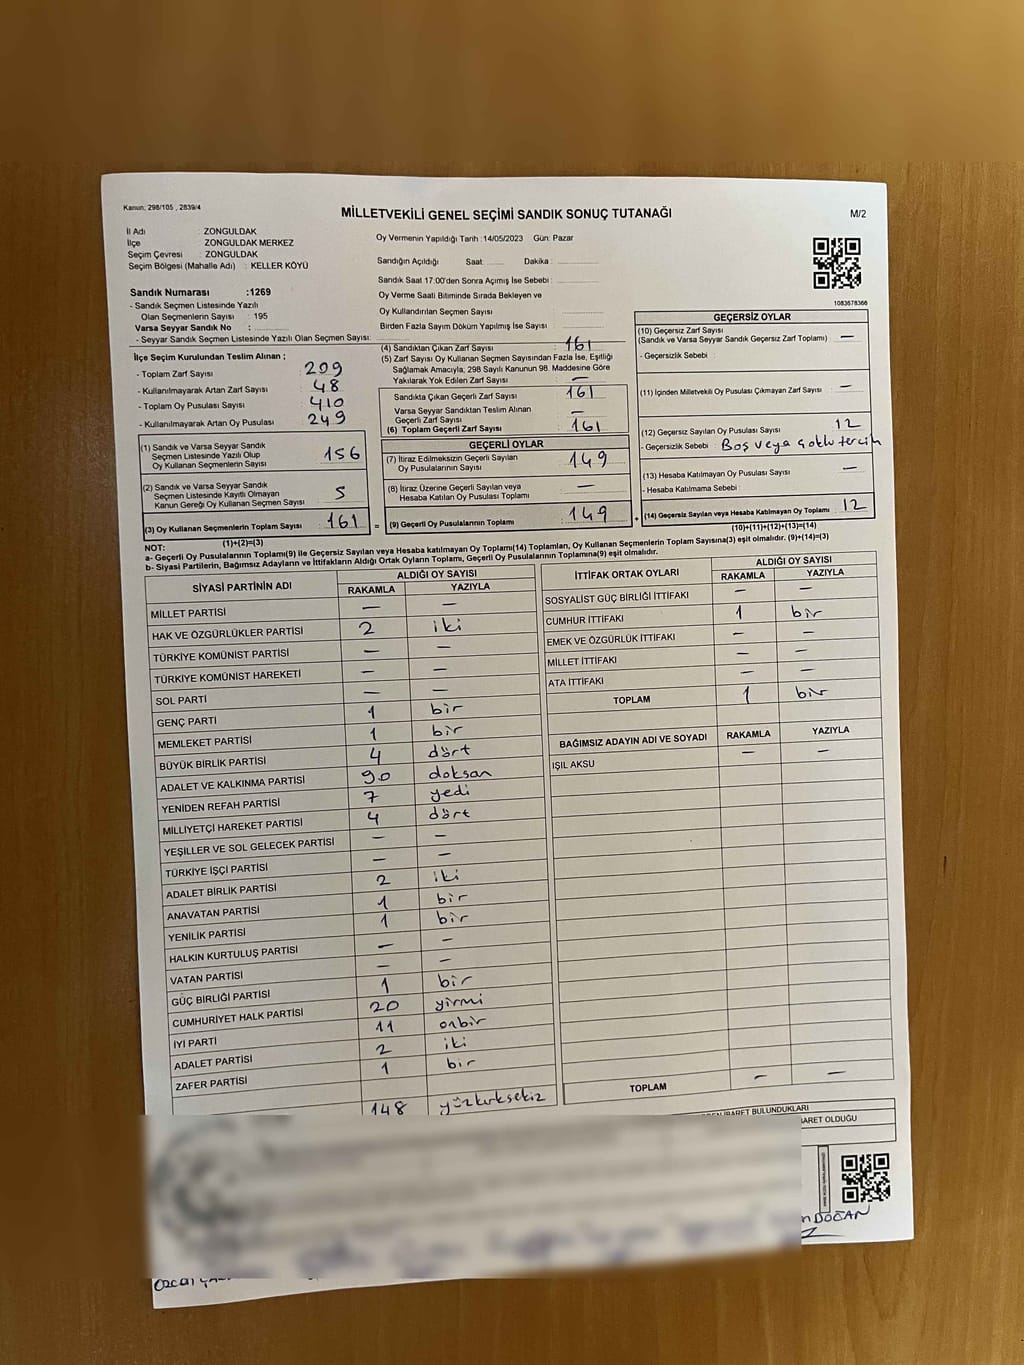 Kanun; 298/105 , 2839/4
MİLLETVEKİLİ GENEL SEÇİMİ SANDIK SONUÇ TUTANAĞI
M/2
İl Adı : ZONGULDAK
İlçe ZONGULDAK MERKEZ
Seçim Çevresi : ZONGULDAK
Seçim Bölgesi (Mahalle Adı) : KELLER KÖYÜ
Sandık Numarası :1269
- Sandık Seçmen Listesinde Yazılı
Olan Seçmenlerin Sayısı : 195
Varsa Seyyar Sandık No :
- Seyyar Sandık Seçmen Listesinde Yazılı Olan Seçmen Sayısı:
Oy Vermenin Yapıldığı Tarih :14/05/2023 Gün: Pazar
Sandığın Açıldığı Saat: Dakika :
Sandık Saat 17:00'den Sonra Açımış İse Sebebi :
Oy Verme Saati Bitiminde Sırada Bekleyen ve
Oy Kullandırılan Seçmen Sayısı :
Birden Fazla Sayım Döküm Yapılmış İse Sayısı :
1083678366
İlçe Seçim Kurulundan Teslim Alınan ;
- Toplam Zarf Sayısı : 209
- Kullanılmayarak Artan Zarf Sayısı : 48
- Toplam Oy Pusulası Sayısı : 410
- Kullanılmayarak Artan Oy Pusulası : 249
(1) Sandık ve Varsa Seyyar Sandık
Seçmen Listesinde Yazılı Olup
Oy Kullanan Seçmenlerin Sayısı : 156
(2) Sandık ve Varsa Seyyar Sandık
Seçmen Listesinde Kayıtlı Olmayan
Kanun Gereği Oy Kullanan Seçmen Sayısı : 5
(3) Oy Kullanan Seçmenlerin Toplam Sayısı : 161 =
(1)+(2)=(3)
(4) Sandıktan Çıkan Zarf Sayısı : 161
(5) Zarf Sayısı Oy Kullanan Seçmen Sayısından Fazla İse, Eşitliği
Sağlamak Amacıyla; 298 Sayılı Kanunun 98. Maddesine Göre
Yakılarak Yok Edilen Zarf Sayısı : —
Sandıkta Çıkan Geçerli Zarf Sayısı : 161
Varsa Seyyar Sandıktan Teslim Alınan
Geçerli Zarf Sayısı : —
(6) Toplam Geçerli Zarf Sayısı : 161
GEÇERLİ OYLAR
(7) İtiraz Edilmeksizin Geçerli Sayılan
Oy Pusulalarının Sayısı : 149
(8) İtiraz Üzerine Geçerli Sayılan veya
Hesaba Katılan Oy Pusulası Toplamı : —
(9) Geçerli Oy Pusulalarının Toplamı : 149 +
GEÇERSİZ OYLAR
(10) Geçersiz Zarf Sayısı
(Sandık ve Varsa Seyyar Sandık Geçersiz Zarf Toplamı) : —
- Geçersizlik Sebebi :
(11) İçinden Milletvekili Oy Pusulası Çıkmayan Zarf Sayısı : —
(12) Geçersiz Sayılan Oy Pusulası Sayısı : 12
- Geçersizlik Sebebi : Boş veya çoklu tercih
(13) Hesaba Katılmayan Oy Pusulası Sayısı : —
- Hesaba Katılmama Sebebi :
(14) Geçersiz Sayılan veya Hesaba Katılmayan Oy Toplamı : 12
(10)+(11)+(12)+(13)=(14)
NOT:
a- Geçerli Oy Pusulalarının Toplamı(9) ile Geçersiz Sayılan veya Hesaba katılmayan Oy Toplamı(14) Toplamları, Oy Kullanan Seçmenlerin Toplam Sayısına(3) eşit olmalıdır. (9)+(14)=(3)
b- Siyasi Partilerin, Bağımsız Adayların ve İttifakların Aldığı Ortak Oyların Toplamı, Geçerli Oy Pusulalarının Toplamına(9) eşit olmalıdır.
SİYASİ PARTİNİN ADI ALDIĞI OY SAYISI
RAKAMLA YAZIYLA
MİLLET PARTİSİ — —
HAK VE ÖZGÜRLÜKLER PARTİSİ 2 iki
TÜRKİYE KOMÜNİST PARTİSİ — —
TÜRKİYE KOMÜNİST HAREKETİ — —
SOL PARTİ — —
GENÇ PARTİ 1 bir
MEMLEKET PARTİSİ 1 bir
BÜYÜK BİRLİK PARTİSİ 4 dört
ADALET VE KALKINMA PARTİSİ 90 doksan
YENİDEN REFAH PARTİSİ 7 yedi
MİLLİYETÇİ HAREKET PARTİSİ 4 dört
YEŞİLLER VE SOL GELECEK PARTİSİ — —
TÜRKİYE İŞÇİ PARTİSİ — —
ADALET BİRLİK PARTİSİ 2 iki
ANAVATAN PARTİSİ 1 bir
YENİLİK PARTİSİ 1 bir
HALKIN KURTULUŞ PARTİSİ — —
VATAN PARTİSİ — —
GÜÇ BİRLİĞİ PARTİSİ 1 bir
CUMHURİYET HALK PARTİSİ 20 yirmi
İYİ PARTİ 11 onbir
ADALET PARTİSİ 2 iki
ZAFER PARTİSİ 1 bir
148 yüzkırksekiz
İTTİFAK ORTAK OYLARI ALDIĞI OY SAYISI
RAKAMLA YAZIYLA
SOSYALİST GÜÇ BİRLİĞİ İTTİFAKI — —
CUMHUR İTTİFAKI 1 bir
EMEK VE ÖZGÜRLÜK İTTİFAKI — —
MİLLET İTTİFAKI — —
ATA İTTİFAKI — —
TOPLAM 1 bir
BAĞIMSIZ ADAYIN ADI VE SOYADI RAKAMLA YAZIYLA
IŞIL AKSU — —
TOPLAM — —
BULUNDUKLARI
OLDUĞU
DOĞAN